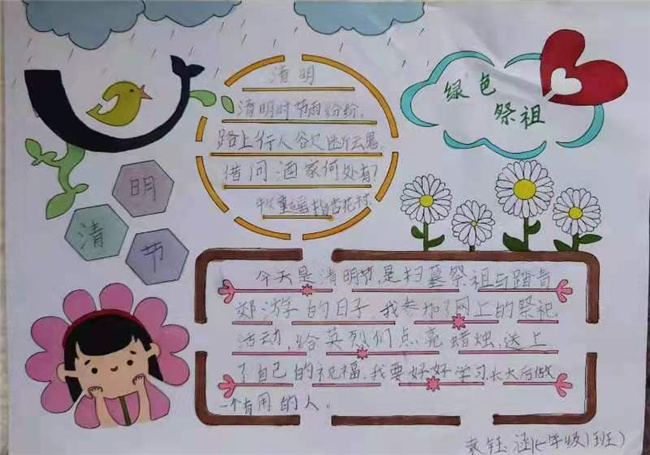 清明
清明时节雨纷纷，
路上行人欲断魂，
借问酒家何处有？
牧童遥指杏花村
绿色
祭祖
明
清
节
今天是清明节，是扫墓祭祖与踏青
郊游的日子，我参加了网上的祭祀
活动，给英烈们点亮蜡烛，送上
了自己的祝福，我要好好学习，长大后做
一个有用的人。
袁钰涵(一年级1班)